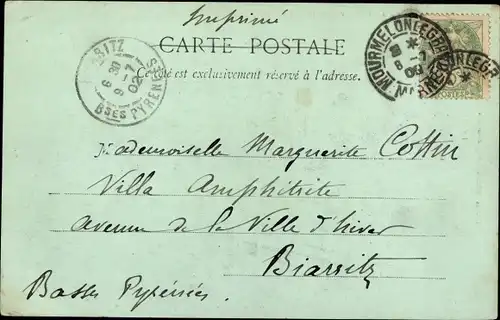 Imprimé
CARTE POSTALE
Ce côté est exclusivement réservé à l'adresse.
BIARRITZ
6 30
9 - 7
02
BSES PYRENEES
MOURMELON-LE-GRAND
8 - 7
MARNE
POSTES
Mademoiselle Marguerite Cottin
Villa Amphitrite
avenue de la Ville d'hiver
Biarritz
Basses Pyrénées